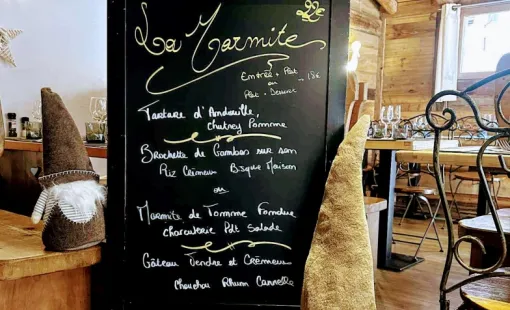 La Marmite 22€
Entrée + Plat 18€
ou
Plat + Dessert
Tartare d'Andouille,
Chutney Pomme
Brochette de Gambas sur son
Riz Crémeux Bisque Maison
ou
Marmite de Tomme Fondue
charcuterie Pdt Salade
Gâteau Tendre et Crémeux
Chouchou Rhum Cannelle